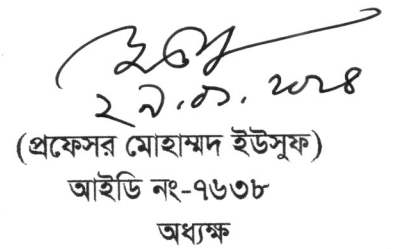 ২৯.০১.২০২৪
(প্রফেসর মোহাম্মদ ইউসুফ)
আইডি নং-৭৬৩৮
অধ্যক্ষ